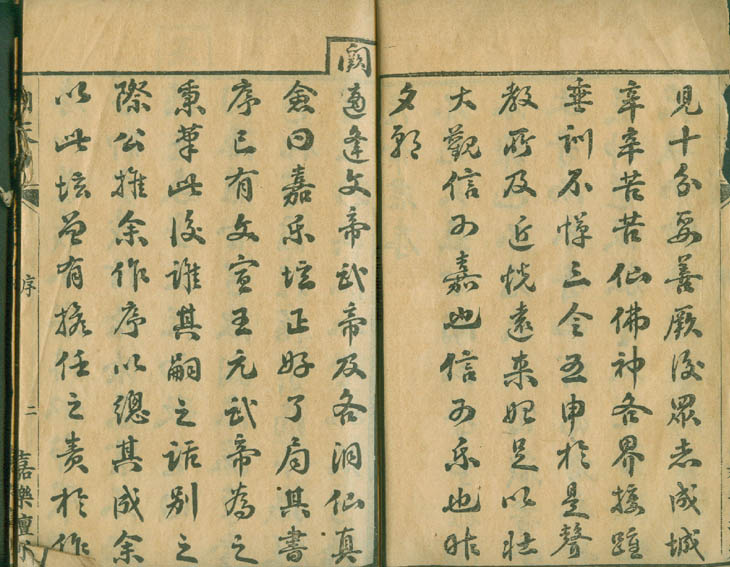 見十分妥善厥後眾志成城
辛辛苦苦仙佛神各界接踵
垂訓不憚三令五申於是聲
教所及近悅遠來始足以壯
大觀信可嘉也信可樂也昨
夕朝
闕適逢文帝武帝及各洞仙真
僉曰嘉樂壇正好了局其書
序已有文宣王元武帝為之
秉筆此後誰其嗣之話別之
際公推余作序以總其成余
以此壇曾有擔任之責於作
序 二 嘉樂壇